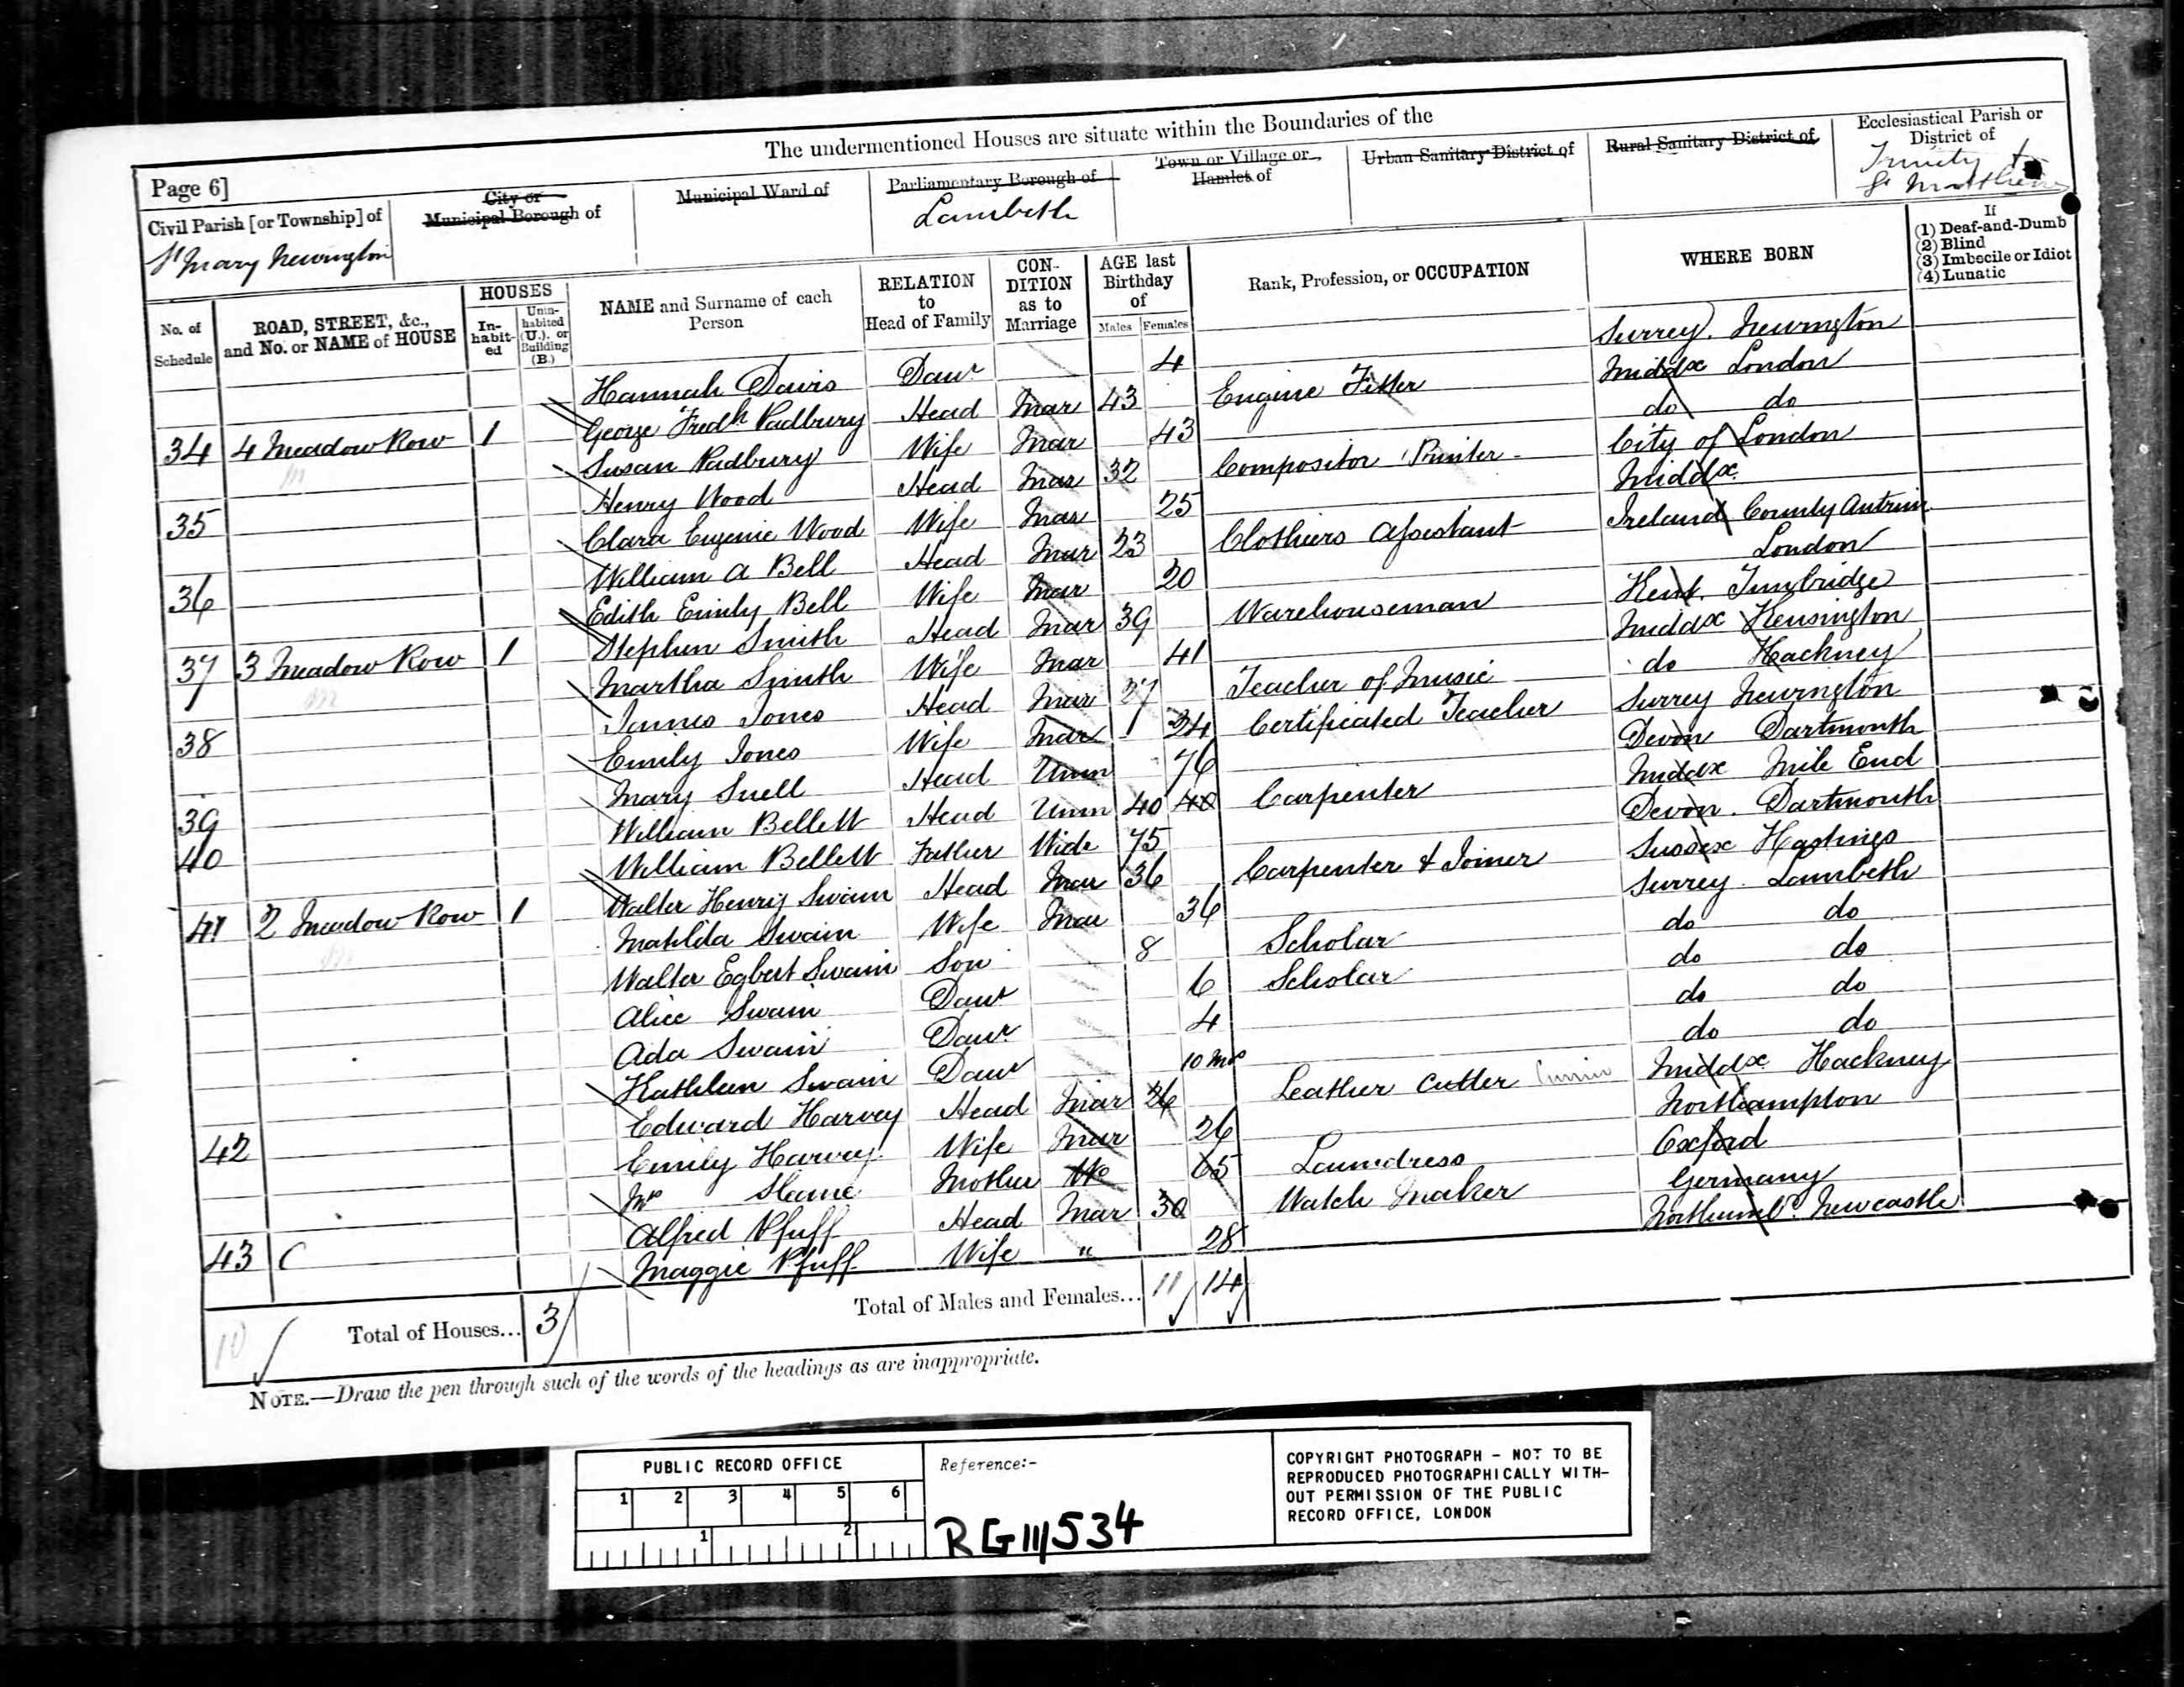 The undermentioned Houses are situate within the Boundaries of the
Page 6]
Civil Parish [or Township] of
St Mary Newington
City or Municipal Borough of
Municipal Ward of
Parliamentary Borough of
Lambeth
Town or Village or Hamlet of
Urban Sanitary District of
Rural Sanitary District of
Ecclesiastical Parish or District of
Trinity &
St Matthew
No. of Schedule
ROAD, STREET, &c., and No. or NAME of HOUSE
HOUSES
Inhabited
Uninhabited (U.), or Building (B.)
NAME and Surname of each Person
RELATION to Head of Family
CONDITION as to Marriage
AGE last Birthday of
Males Females
Rank, Profession, or OCCUPATION
WHERE BORN
If
(1) Deaf-and-Dumb
(2) Blind
(3) Imbecile or Idiot
(4) Lunatic
Hannah Davis Daur 4 Surrey. Newington
34 4 Meadow Row 1 George Fredk Padbury Head Mar 43 Engine Fitter Middx London
Susan Padbury Wife Mar 43 do do
35 Henry Wood Head Mar 32 Compositor Printer City of London
Clara Eugenie Wood Wife Mar 25 Middx
36 William A Bell Head Mar 23 Clothiers Assistant Ireland County Antrim
Edith Emily Bell Wife Mar 20 London
37 3 Meadow Row 1 Stephen Smith Head Mar 39 Warehouseman Kent. Tunbridge
Martha Smith Wife Mar 41 Middx Kensington
38 James Jones Head Mar 27 Teacher of Music do Hackney
Emily Jones Wife Mar 24 Certificated Teacher Surrey Newington
39 Mary Snell Head Unm 76 Devon Dartmouth
40 William Bellett Head Unm 40 40 Carpenter Middx Mile End
William Bellett Father Widr 75 Devon. Dartmouth
41 2 Meadow Row 1 Walter Henry Swain Head Mar 36 Carpenter & Joiner Sussex Hastings
Matilda Swain Wife Mar 36 Surrey. Lambeth
Walter Egbert Swain Son 8 Scholar do do
Alice Swain Daur 6 Scholar do do
Ada Swain Daur 4 do do
Kathleen Swain Daur 10 Mos do do
42 Edward Harvey Head Mar 26 Leather Cutter Middx Hackney
Emily Harvey Wife Mar 26 Northampton
Mrs Mother 65 Laundress Oxford
43 Alfred Pfuff Head Mar 30 Watch Maker Germany
Maggie Pfuff Wife " 28 Northumbd. Newcastle
10 Total of Houses... 3 Total of Males and Females... 11 14
NOTE.—Draw the pen through such of the words of the headings as are inappropriate.
PUBLIC RECORD OFFICE
1 2 3 4 5 6
1 2
Reference:-
RG11/534
COPYRIGHT PHOTOGRAPH - NOT TO BE
REPRODUCED PHOTOGRAPHICALLY WITH-
OUT PERMISSION OF THE PUBLIC
RECORD OFFICE, LONDON